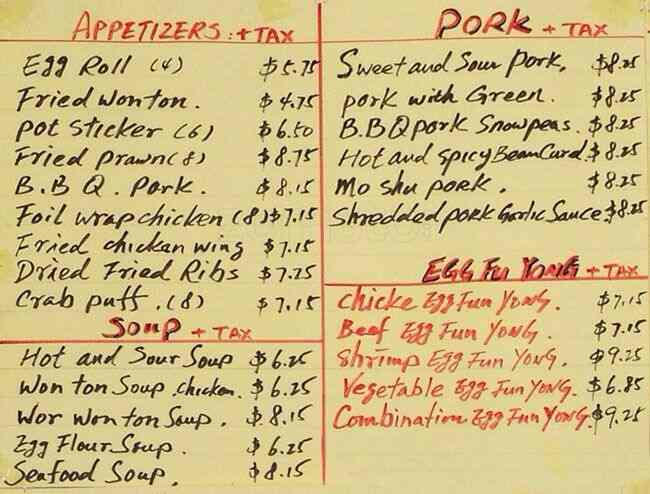 APPETIZERS: + TAX
Egg Roll (4) $5.75
Fried Wonton. $4.75
Pot Sticker (6) $6.50
Fried Prawn (8) $8.75
B.B.Q. Pork. $8.15
Foil wrap chicken (8) $7.15
Fried chicken wing $7.15
Dried Fried Ribs $7.25
Crab puff. (8) $7.15
SOUP + TAX
Hot and Sour Soup $6.25
Won ton Soup .chicken. $6.25
Wor Won ton Soup. $8.15
Egg Flour Soup. $6.25
Seafood Soup. $8.15
PORK + TAX
Sweet and Sour Pork. $8.25
pork with Green. $8.25
B.B.Q pork Snowpeas. $8.25
Hot and spicy Bean Curd. $8.25
Mo shu pork. $8.25
Shredded pork Garlic Sauce. $8.25
EGG FU YONG + TAX
chicke Egg Fun Yong. $7.15
Beef Egg Fun Yong. $7.15
Shrimp Egg Fun Yong. $9.25
Vegetable Egg Fun Yong. $6.85
Combination Egg Fun Yong. $9.25